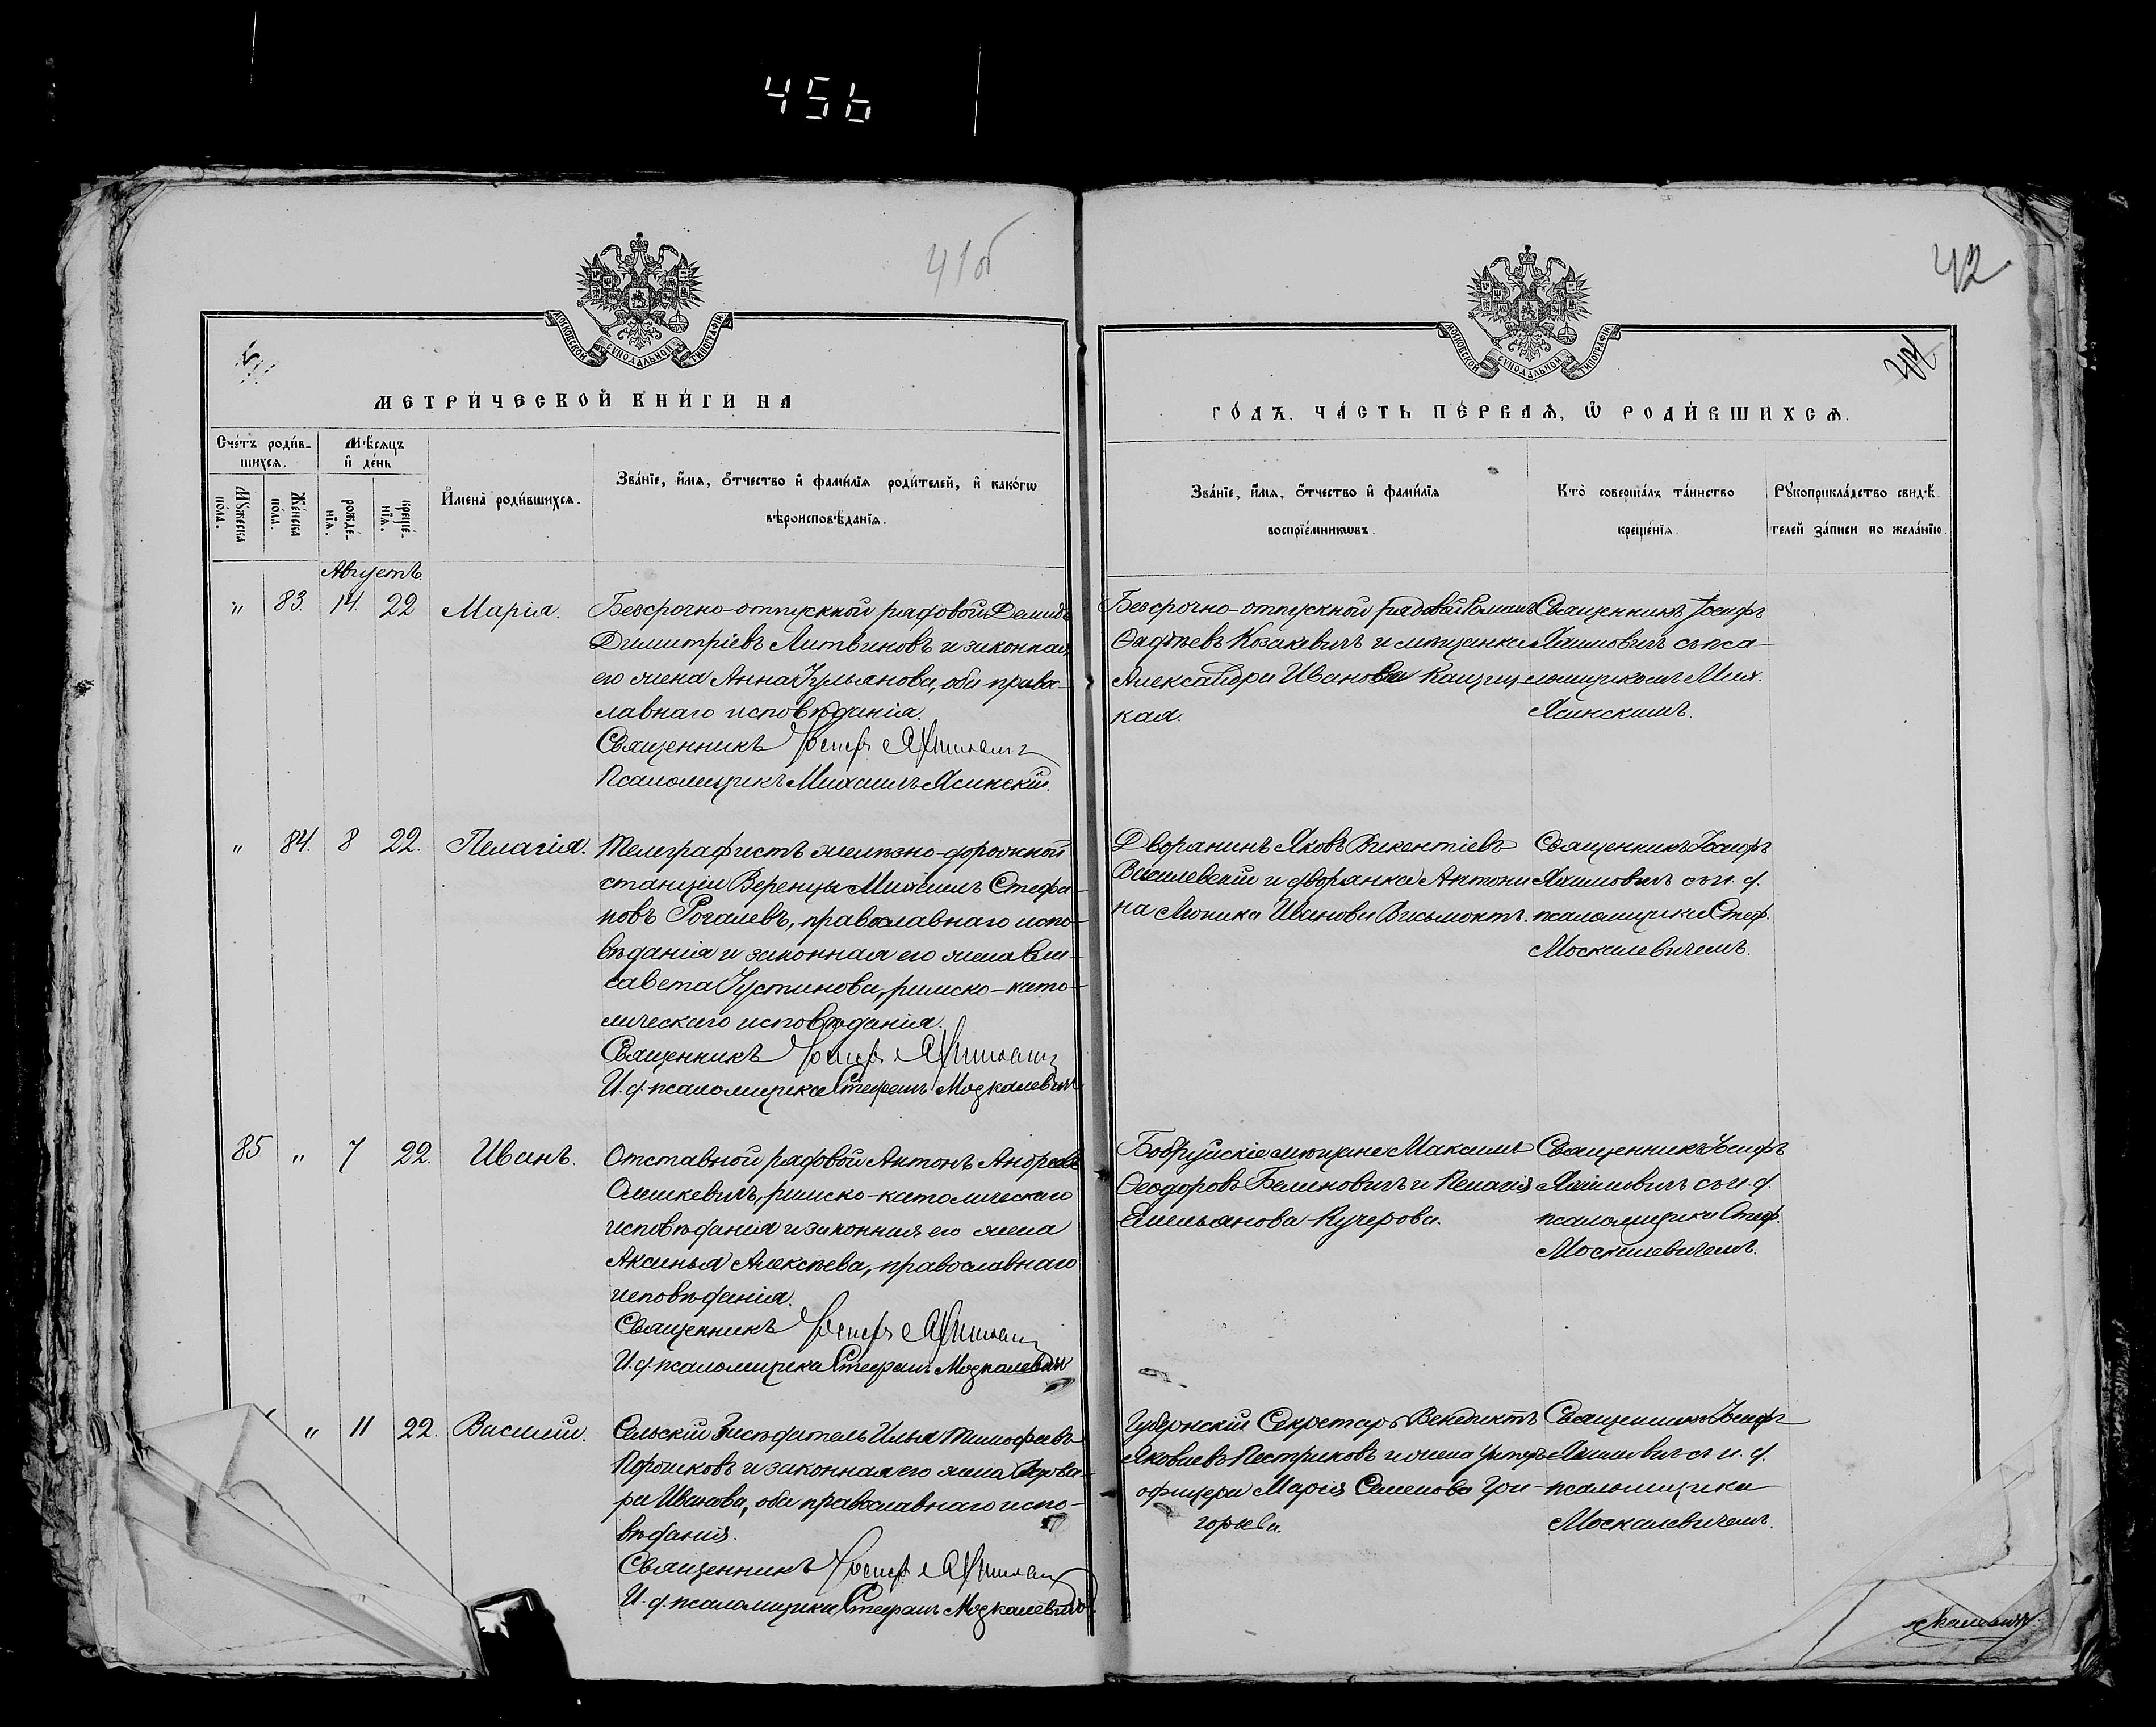 456
41об
42
МОСКОВСКОЙ СѴНОДАЛЬНОЙ ТИПОГРАФІИ
МОСКОВСКОЙ СѴНОДАЛЬНОЙ ТИПОГРАФІИ
МЕТРИ́ЧЕСКОЙ КНИ́ГИ НА
ГО́ДЪ. ЧА́СТЬ ПЕ́РВАѦ, Ѡ҆ РОДИ́ВШИХСѦ.
Сче́тъ роди́в-
шихсѧ.
Мѣ́сѧцъ
и҆ де́нь
Мꙋ́жеска
по́ла.
Же́нска
по́ла.
рожде́-
нїѧ.
креще́-
нїѧ.
И҆мена̀ роди́вшихсѧ.
Зва́нїе, и҆́мѧ, ѻ҆́тчество и҆ фами́лїѧ роди́телей, и҆ како́гѡ
вѣроисповѣ́данїѧ.
Зва́нїе, и҆́мѧ, ѻ҆́тчество и҆ фами́лїѧ
воспрїе́мникѡвъ.
Кто̀ соверша́лъ та́инство
креще́нїѧ.
Рꙋкоприкла́дство свидѣ́-
телей за́писи по жела́нїю.
Августъ.
" 83. 14. 22 Марія.
Безсрочно-отпускной рядовой Демидъ
Димитріевъ Литвиновъ и законная
его жена Анна Iульянова, оба право-
славнаго исповѣданія.
Священникъ Іосифъ
Псаломщикъ Михаилъ Ясинскій.
Безсрочно-отпускной рядовой Романъ
Ѳадѣевъ Козакевичъ и мѣщанка
Александра Иванова
кая.
Священникъ Іосифъ
съ пса-
ломщикомъ Мих.
Ясинскимъ.
" 84. 8 22. Пелагія.
Телеграфистъ желѣзно-дорожной
станціи Веренцы Михаилъ Стефа-
новъ Рогалевъ, православнаго испо-
вѣданія и законная его жена Ели-
савета Iустинова, римско-като-
лическаго исповѣданія.
Священникъ Іосифъ
И. д. псаломщика Стефанъ Москалевичъ
Дворянинъ Яковъ Викентіевъ
Василевскій и дворянка Антони-
на Моника Иванова Висьмонтъ.
Священникъ Іосифъ
съ и. д.
псаломщика Стеф.
Москалевичемъ.
85 " 7 22. Иванъ.
Отставной рядовой Антонъ Андреевъ
Олешкевичъ, римско-католическаго
исповѣданія и законная его жена
Аксинья Алексѣева, православнаго
исповѣданія.
Священникъ Іосифъ
И. д. псаломщика Стефанъ Москалевичъ
Бобруйскіе мѣщане Максимъ
Ѳеодоровъ Белиновичъ и Пелагія
Емельянова Кучерова.
Священникъ Іосифъ
съ и. д.
псаломщика Стеф.
Москалевичемъ.
" 11 22. Василій.
Сельскій Засѣдатель Илья Тимофеевъ
Порошковъ и законная его жена Варва-
ра Иванова, оба православнаго испо-
вѣданія.
Священникъ Іосифъ
И. д. псаломщика Стефанъ Москалевичъ.
Губернскій Секретарь Венедиктъ
Яковлевъ Пестриковъ и жена унтеръ-
офицера Марія Семенова Гри-
горьева.
Священникъ Іосифъ
съ и. д.
псаломщика
Москалевичемъ.